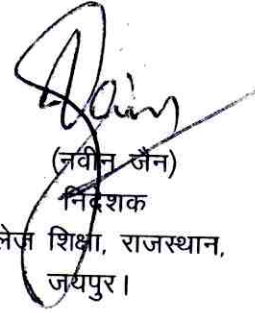 Jain
(नवीन जैन)
निदेशक
लेज शिक्षा, राजस्थान,
जयपुर।